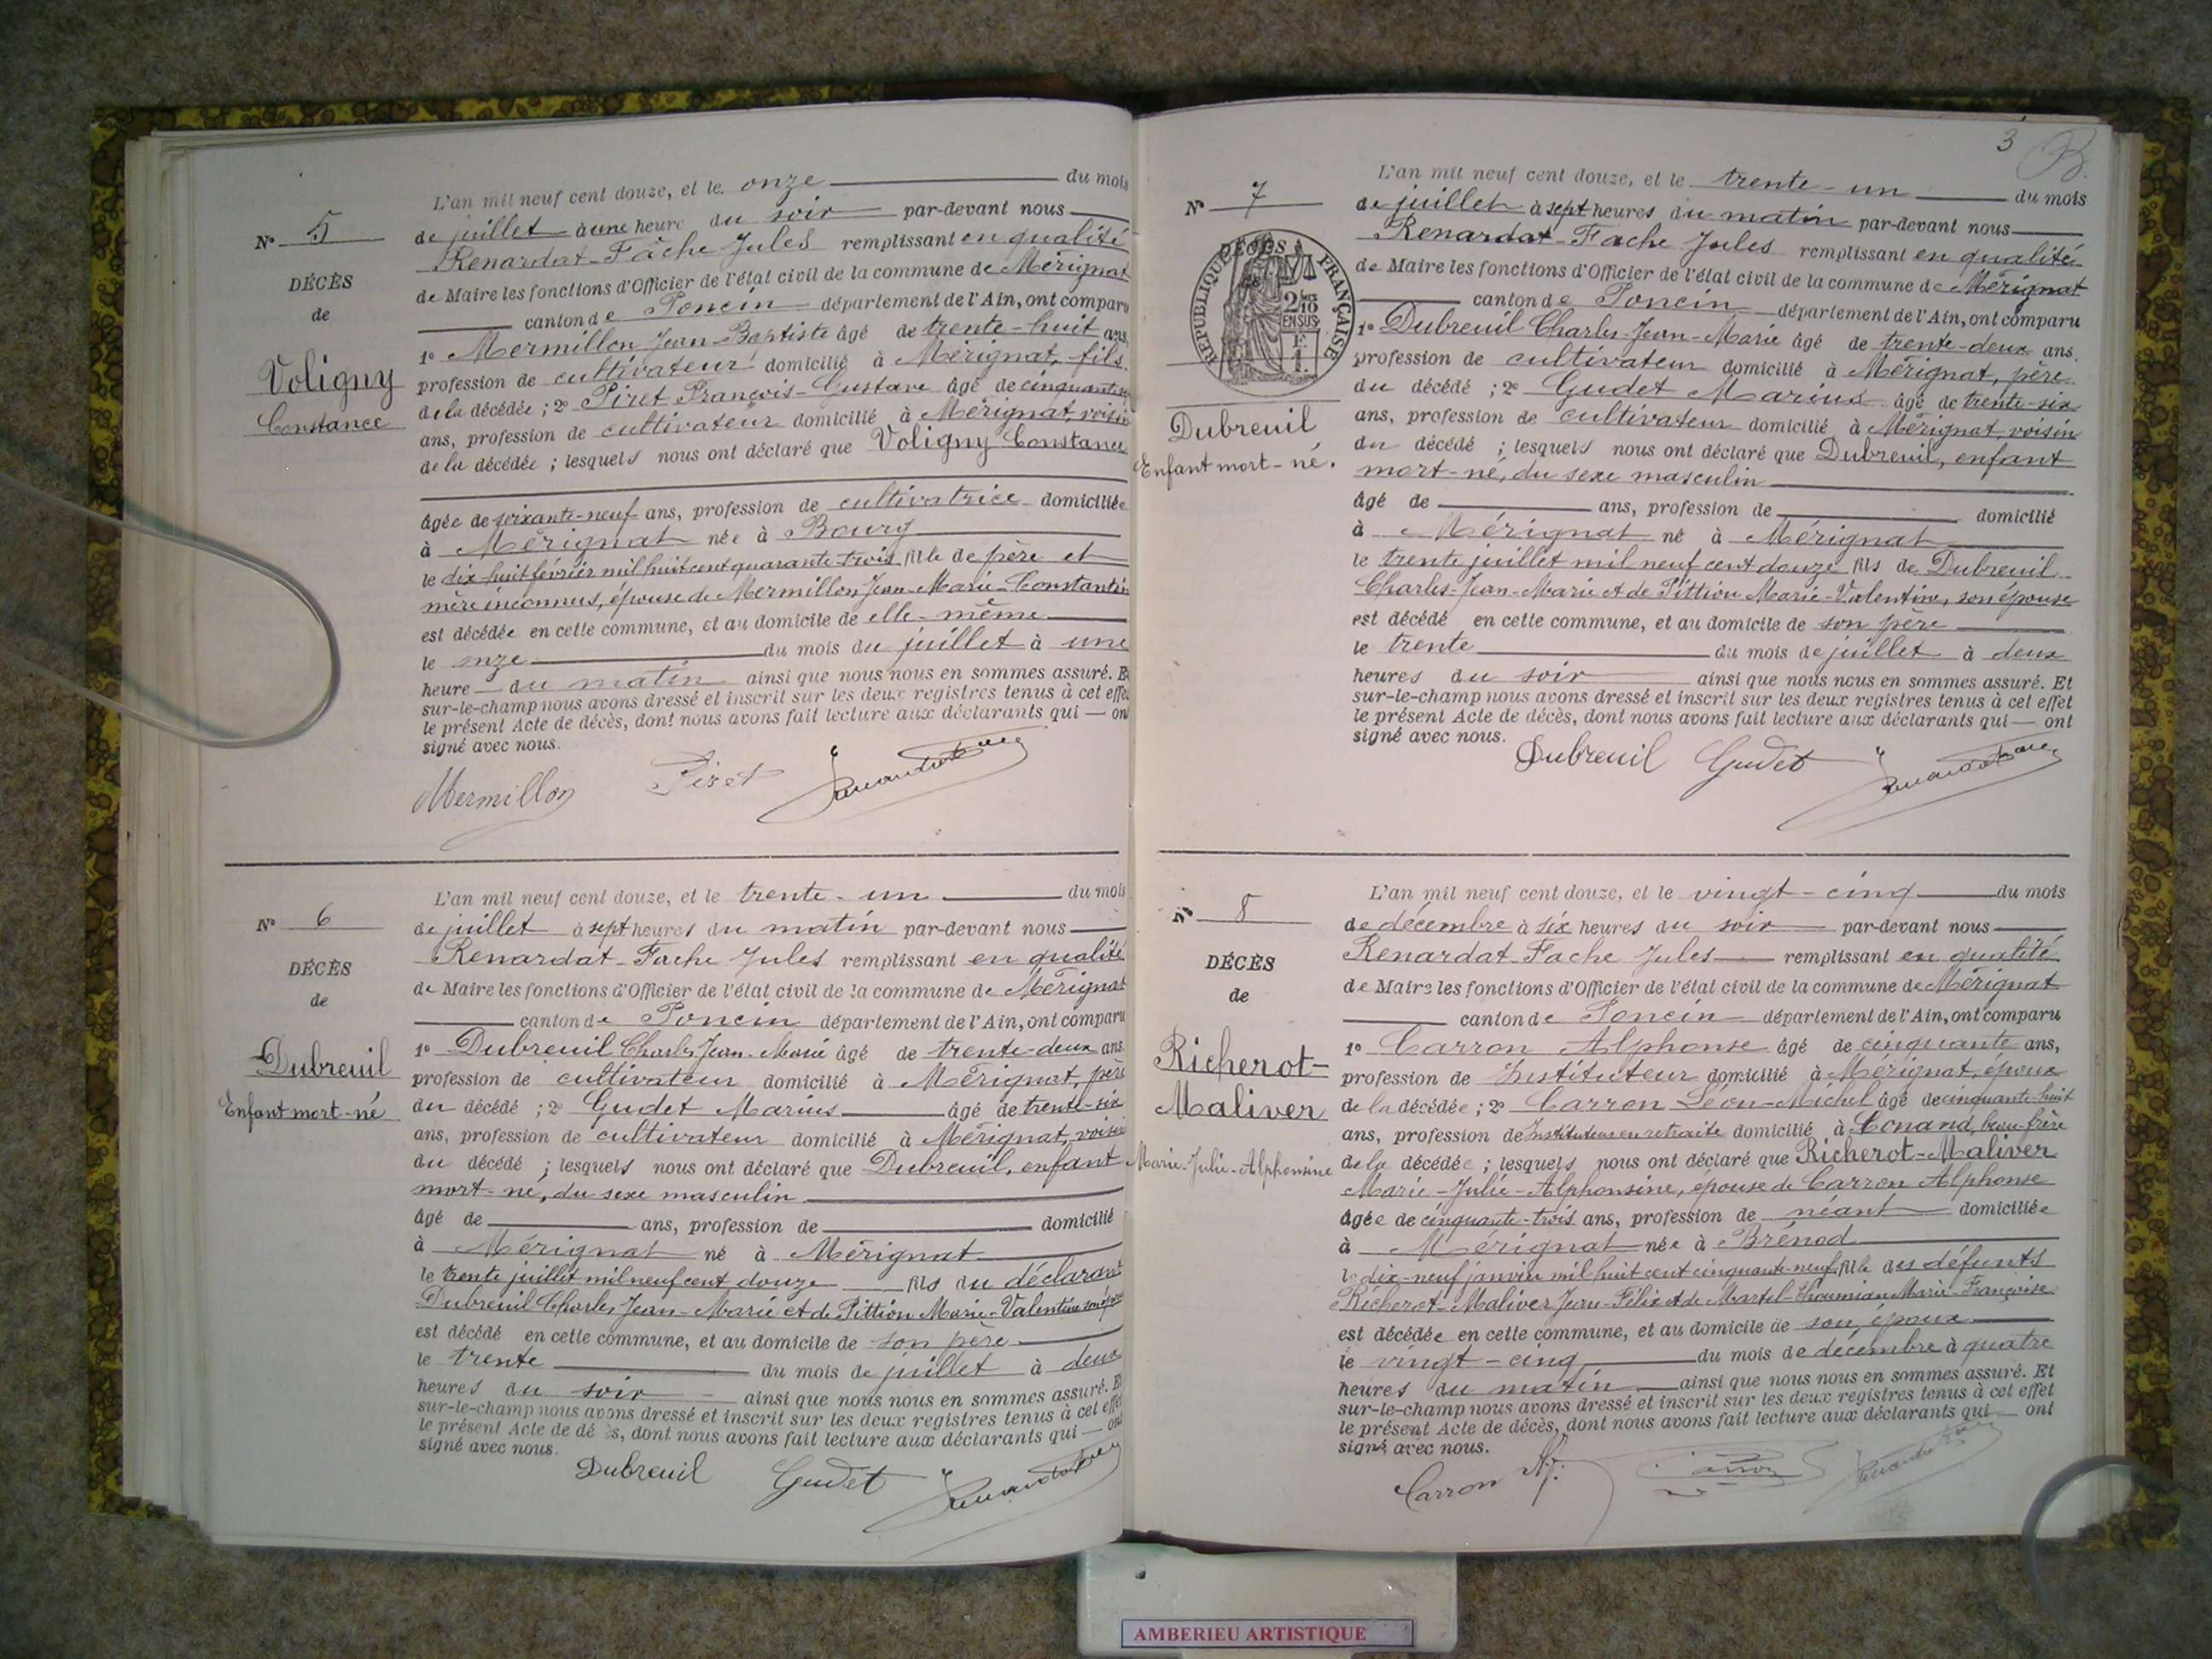 N° 5
DÉCÈS
de
Voligny
Constance
L'an mil neuf cent douze, et le onze du mois
de juillet à une heure du soir par-devant nous
Renardat-Fache Jules remplissant en qualité
de Maire les fonctions d'Officier de l'état civil de la commune de Mérignat
canton de Poncin département de l'Ain, ont comparu
1° Mermillon Jean-Baptiste âgé de trente-huit ans,
profession de cultivateur domicilié à Mérignat, fils
de la décédée ; 2° Piret François-Gustave âgé de cinquante
ans, profession de cultivateur domicilié à Mérignat, voisin
de la décédée ; lesquels nous ont déclaré que Voligny Constance
âgée de soixante-neuf ans, profession de cultivatrice domiciliée
à Mérignat née à Bourg
le dix-huit février mil huit cent quarante-trois fille de père et
mère inconnus, épouse de Mermillon Jean-Marie-Constantin
est décédée en cette commune, et au domicile de elle-même
le onze du mois du juillet à une
heure du matin ainsi que nous nous en sommes assuré. Et
sur-le-champ nous avons dressé et inscrit sur les deux registres tenus à cet effet
le présent Acte de décès, dont nous avons fait lecture aux déclarants qui — ont
signé avec nous.
Mermillon Piret
N° 6
DÉCÈS
de
Dubreuil
Enfant mort-né
L'an mil neuf cent douze, et le trente-un du mois
de juillet à sept heures du matin par-devant nous
Renardat-Fache Jules remplissant en qualité
de Maire les fonctions d'Officier de l'état civil de la commune de Mérignat
canton de Poncin département de l'Ain, ont comparu
1° Dubreuil Charles Jean-Marie âgé de trente-deux ans
profession de cultivateur domicilié à Mérignat, père
du décédé ; 2° Gudet Marius âgé de trente-six
ans, profession de cultivateur domicilié à Mérignat, voisin
du décédé ; lesquels nous ont déclaré que Dubreuil, enfant
mort-né, du sexe masculin
âgé de ans, profession de domicilié
à Mérignat né à Mérignat
le trente juillet mil neuf cent douze fils du déclarant
Dubreuil Charles Jean-Marie et de Pittion Marie-Valentine son épouse
est décédé en cette commune, et au domicile de son père
le trente du mois de juillet à deux
heures du soir ainsi que nous nous en sommes assuré. Et
sur-le-champ nous avons dressé et inscrit sur les deux registres tenus à cet effet
le présent Acte de décès, dont nous avons fait lecture aux déclarants qui — ont
signé avec nous.
Dubreuil Gudet
3
N° 7
DÉCÈS
RÉPUBLIQUE FRANÇAISE
2/10
EN SUS
F.
1.
Dubreuil
Enfant mort-né.
L'an mil neuf cent douze, et le trente-un du mois
de juillet à sept heures du matin par-devant nous
Renardat-Fache Jules remplissant en qualité
de Maire les fonctions d'Officier de l'état civil de la commune de Mérignat
canton de Poncin département de l'Ain, ont comparu
1° Dubreuil Charles-Jean-Marie âgé de trente-deux ans.
profession de cultivateur domicilié à Mérignat, père
du décédé ; 2° Gudet Marius âgé de trente-six
ans, profession de cultivateur domicilié à Mérignat, voisin
du décédé ; lesquels nous ont déclaré que Dubreuil, enfant
mort-né, du sexe masculin
âgé de ans, profession de domicilié
à Mérignat né à Mérignat
le trente juillet mil neuf cent douze fils de Dubreuil
Charles-Jean-Marie et de Pittion Marie-Valentine, son épouse
est décédé en cette commune, et au domicile de son père
le trente du mois de juillet à deux
heures du soir ainsi que nous nous en sommes assuré. Et
sur-le-champ nous avons dressé et inscrit sur les deux registres tenus à cet effet
le présent Acte de décès, dont nous avons fait lecture aux déclarants qui — ont
signé avec nous.
Dubreuil Gudet
N° 8
DÉCÈS
de
Richerot-
Maliver
Marie-Julie-Alphonsine
L'an mil neuf cent douze, et le vingt-cinq du mois
de décembre à six heures du soir par-devant nous
Renardat-Fache Jules remplissant en qualité
de Maire les fonctions d'Officier de l'état civil de la commune de Mérignat
canton de Poncin département de l'Ain, ont comparu
1° Carron Alphonse âgé de cinquante ans,
profession de Instituteur domicilié à Mérignat, époux
de la décédée ; 2° Carron Léon-Michel âgé de cinquante-huit
ans, profession de Instituteur en retraite domicilié à Conand, beau-frère
de la décédée ; lesquels nous ont déclaré que Richerot-Maliver
Marie-Julie-Alphonsine, épouse de Carron Alphonse
âgée de cinquante-trois ans, profession de néant domiciliée
à Mérignat née à Brénod
le dix-neuf janvier mil huit cent cinquante-neuf fille des défunts
Richerot-Maliver Jean-Félix et de Martel Marie-Françoise
est décédée en cette commune, et au domicile de son époux
le vingt-cinq du mois de décembre à quatre
heures du matin ainsi que nous nous en sommes assuré. Et
sur-le-champ nous avons dressé et inscrit sur les deux registres tenus à cet effet
le présent Acte de décès, dont nous avons fait lecture aux déclarants qui — ont
signé avec nous.
Carron Carron
AMBERIEU ARTISTIQUE